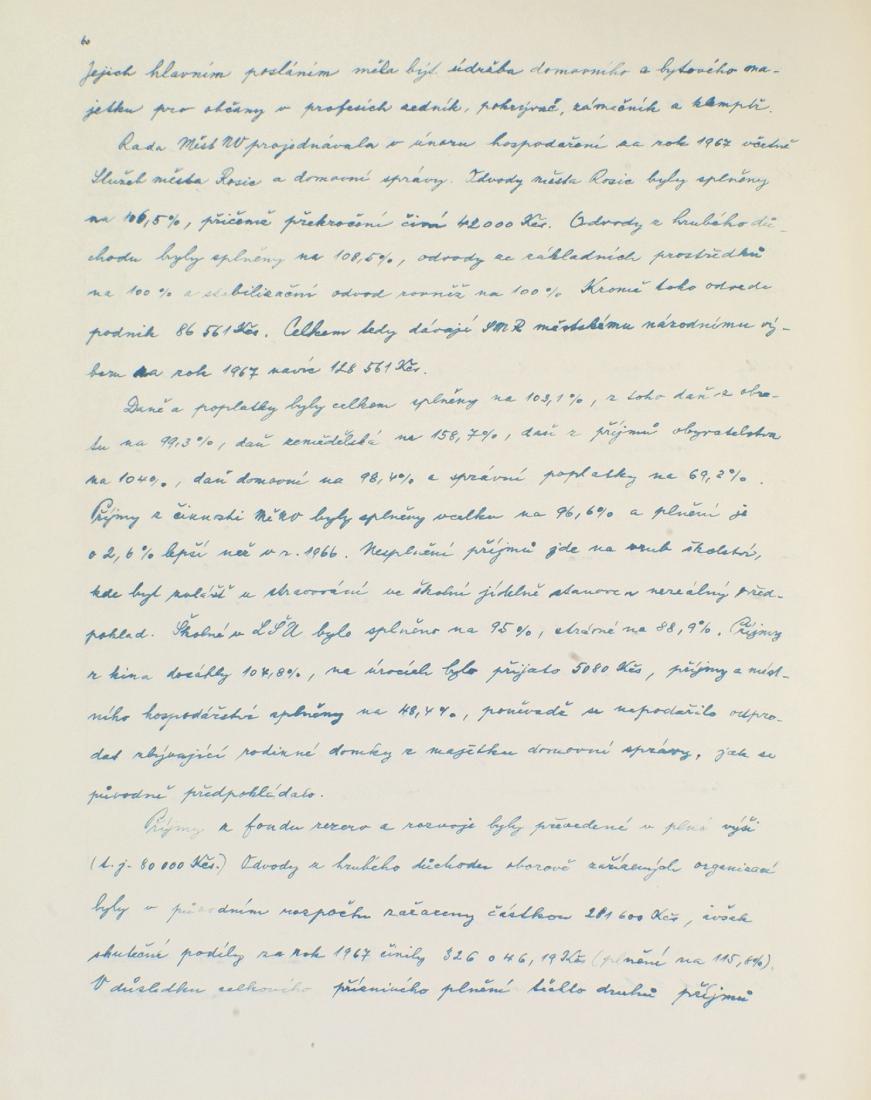 60
Jejich hlavním posláním měla být údržba domovního a bytového ma-
jetku pro občany v profesích zedník, pokrývač, zámečník a klempíř.
Rada Měst NV projednávala v únoru hospodaření za rok 1967 včetně
Služeb města Rosic a domovní správy. Odvody města Rosic byly splněny
na 106,5%, přičemž překročení činí 42000 Kčs. Odvody z hrubého dů-
chodu byly splněny na 108,5%, odvody ze základních prostředků
na 100% a stabilizační odvod rovněž na 100% Kromě toho odvede
podnik 86 561 Kčs. Celkem tedy dávají SMR městskému národnímu vý-
boru za rok 1967 navíc 128 561 Kčs.
Daně a poplatky byly celkem splněny na 103,1%, z toho daň z obra-
tu na 99,3%, daň zemědělská na 158,7%, daň z příjmů obyvatelstva
na 104%, daň domovní na 98,4% a správní poplatky na 69,2%.
Příjmy z činnosti MěNV byly splněny vcelku na 96,6% a plnění je
o 2,6% lepší než v r. 1966. Nesplnění příjmů jde na vrub školství,
kde byl zvlášť u stravování ve školní jídelně stanoven nereálný před-
poklad. Školné v LŠU bylo splněno na 95%, stravné na 88,9%. Příjmy
z kina dosáhly 104,8%, na úrocích bylo přijato 5080 Kčs, příjmy z míst-
ního hospodářství splněny na 48,4%, poněvadž se nepodařilo odpro-
dat zbývající rodinné domky z majetku domovní správy, jak se
původně předpokládalo.
Příjmy z fondu rezerv a rozvoje byly převedené v plné výši
(t. j. 80 000 Kčs.) Odvody z hrubého důchodu oborově zařízených organizací
byly v původním rozpočtu zařazeny částkou 281 600 Kčs, avšak
skutečné podíly za rok 1967 činily 326 046,19 Kčs (plnění na 115,8%).
V důsledku celkového příznivého plnění těchto druhů příjmů